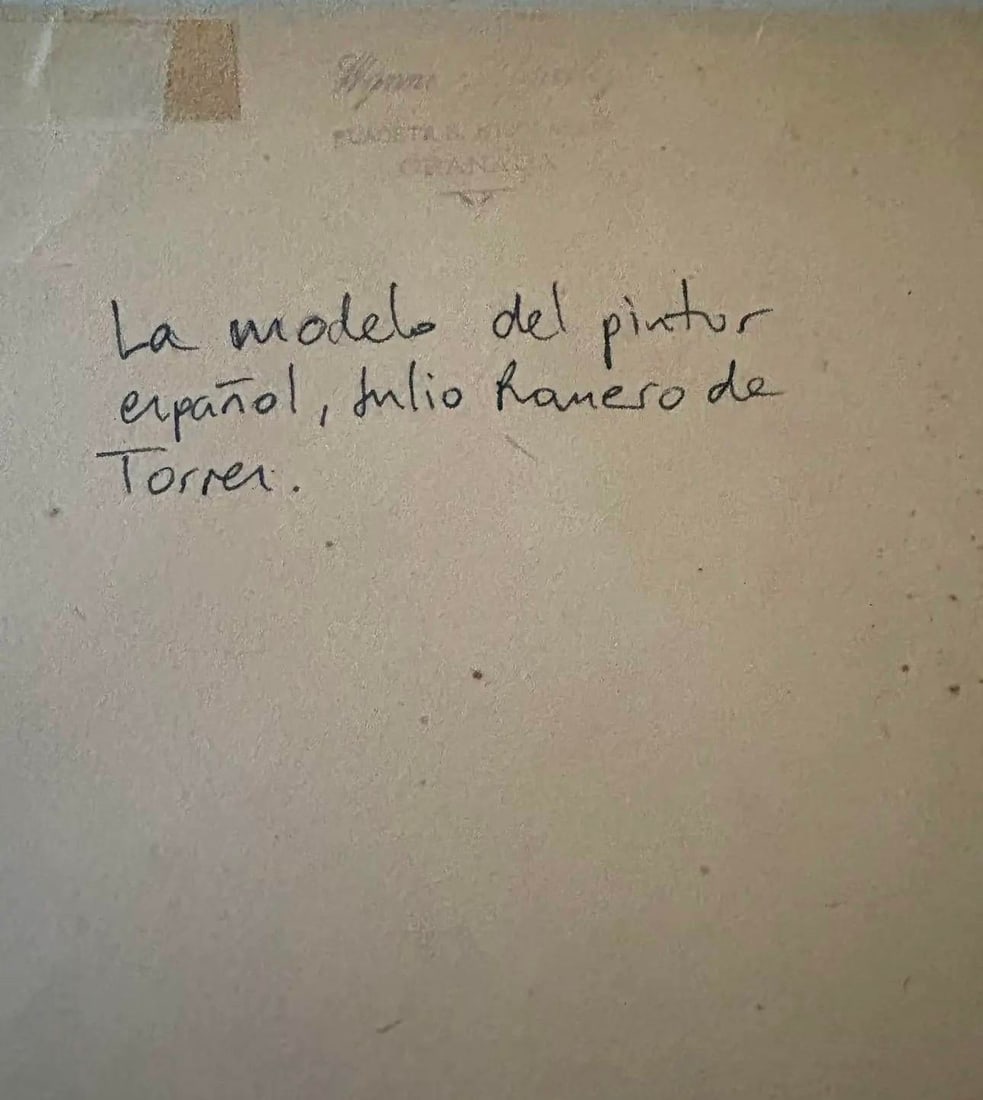 GRANADA
La modelo del pintor
español, Julio Romero de
Torres.